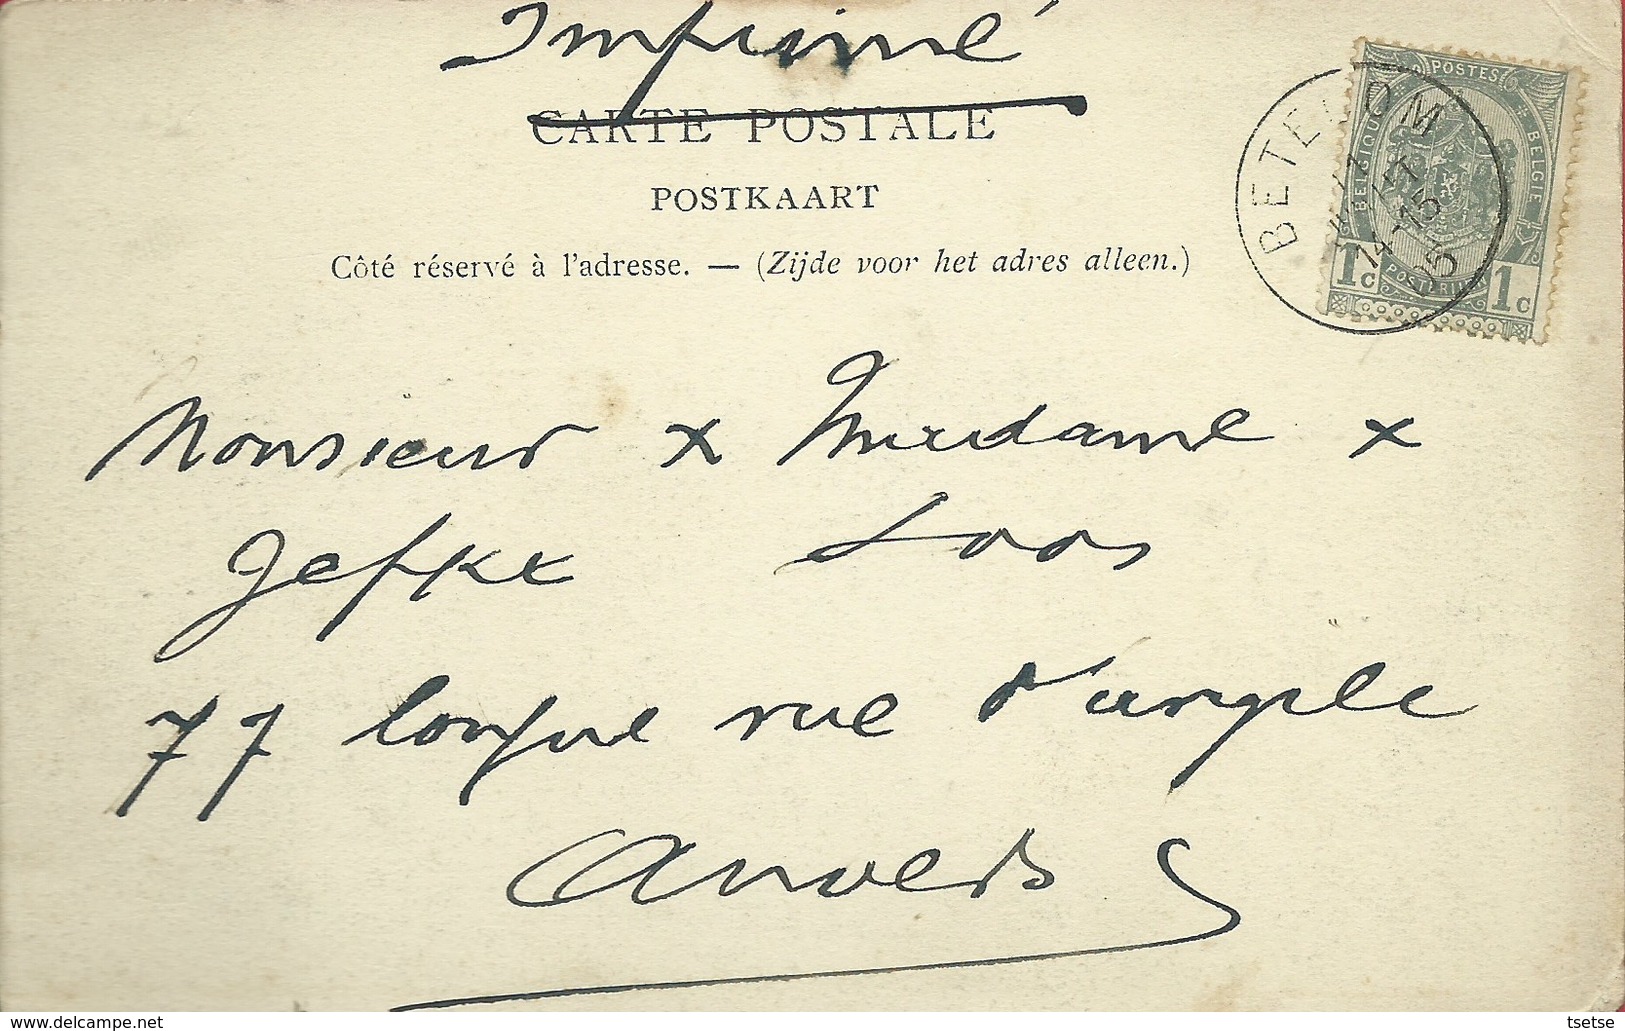 Imprimé
CARTE POSTALE
POSTKAART
Côté réservé à l'adresse. — (Zijde voor het adres alleen.)
POSTES
BELGIQUE
BELGIE
1c 1c
BETEKOM
14-15
Monsieur x Madame x
Jefke Loos
77 longue rue d'argile
Anvers
www.delcampe.net
tsetse